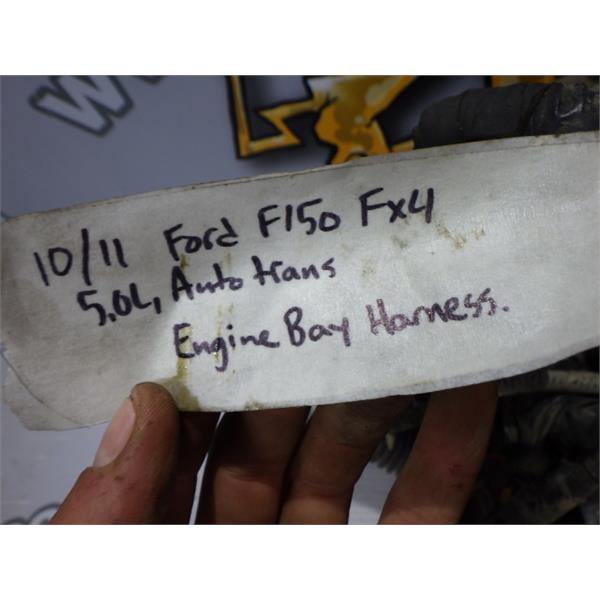 10/11 Ford F150 Fx4
5.0L, Auto trans
Engine Bay Harness.